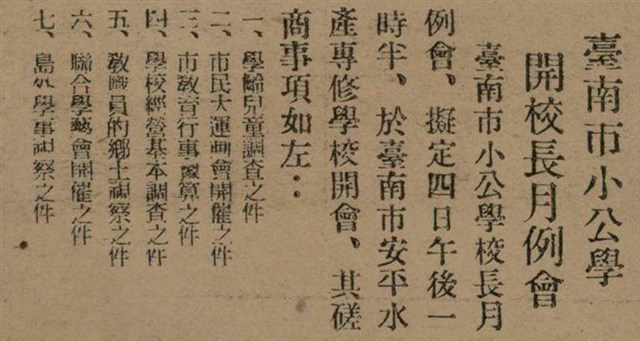 臺南市小公學
開校長月例會
臺南市小公學校長月
例會、擬定四日午後一
時半、於臺南市安平水
產專修學校開會、其磋
商事項如左：
一、學齡兒童調査之件
二、市民大運動會開催之件
三、市敎育行事豫算之件
四、學校經營基本調査之件
五、敎職員的鄉土視察之件
六、聯合學藝會開催之件
七、島外學事視察之件